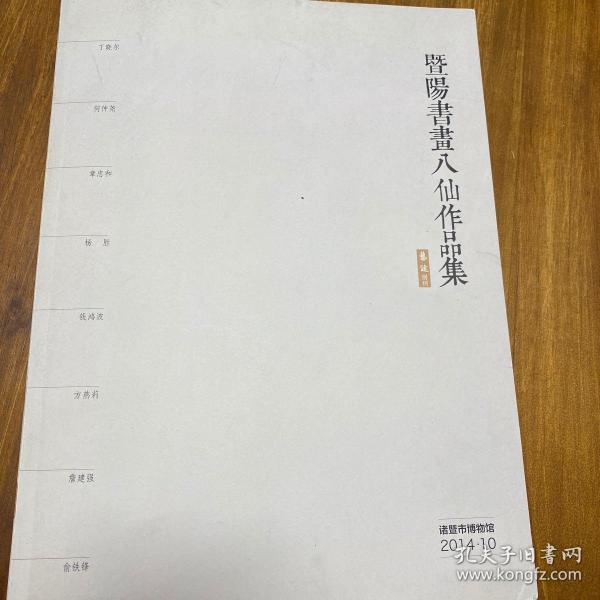 暨陽書畫八仙作品集
丁晓尔
何仲尧
章忠和
杨胜
钱鸿波
方燕莉
詹建强
俞铁锋
诸暨市博物馆
2014·10
孔夫子旧书网
www.kongfz.com